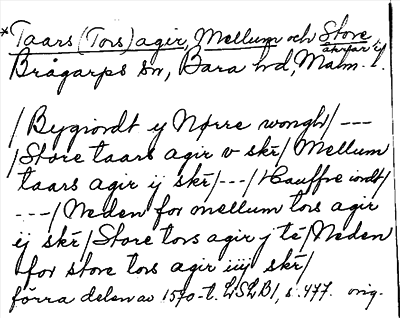 *Taars (Tors) agir, Mellum och Store
åkrar i
Brågarps sn, Bara hd, Malm. l.
/Bygiordt y Nørre wongh/---
/Store taars agir v skr/ Mellum
taars agir ij skr/---/Hauffre iordt/
---/Neden for mellum tors agir
ij skr/Store tors agir j te/Neden
for store tors agir iiij skr/
förra delen av 1570-t. LSLB1, s. 477. orig.